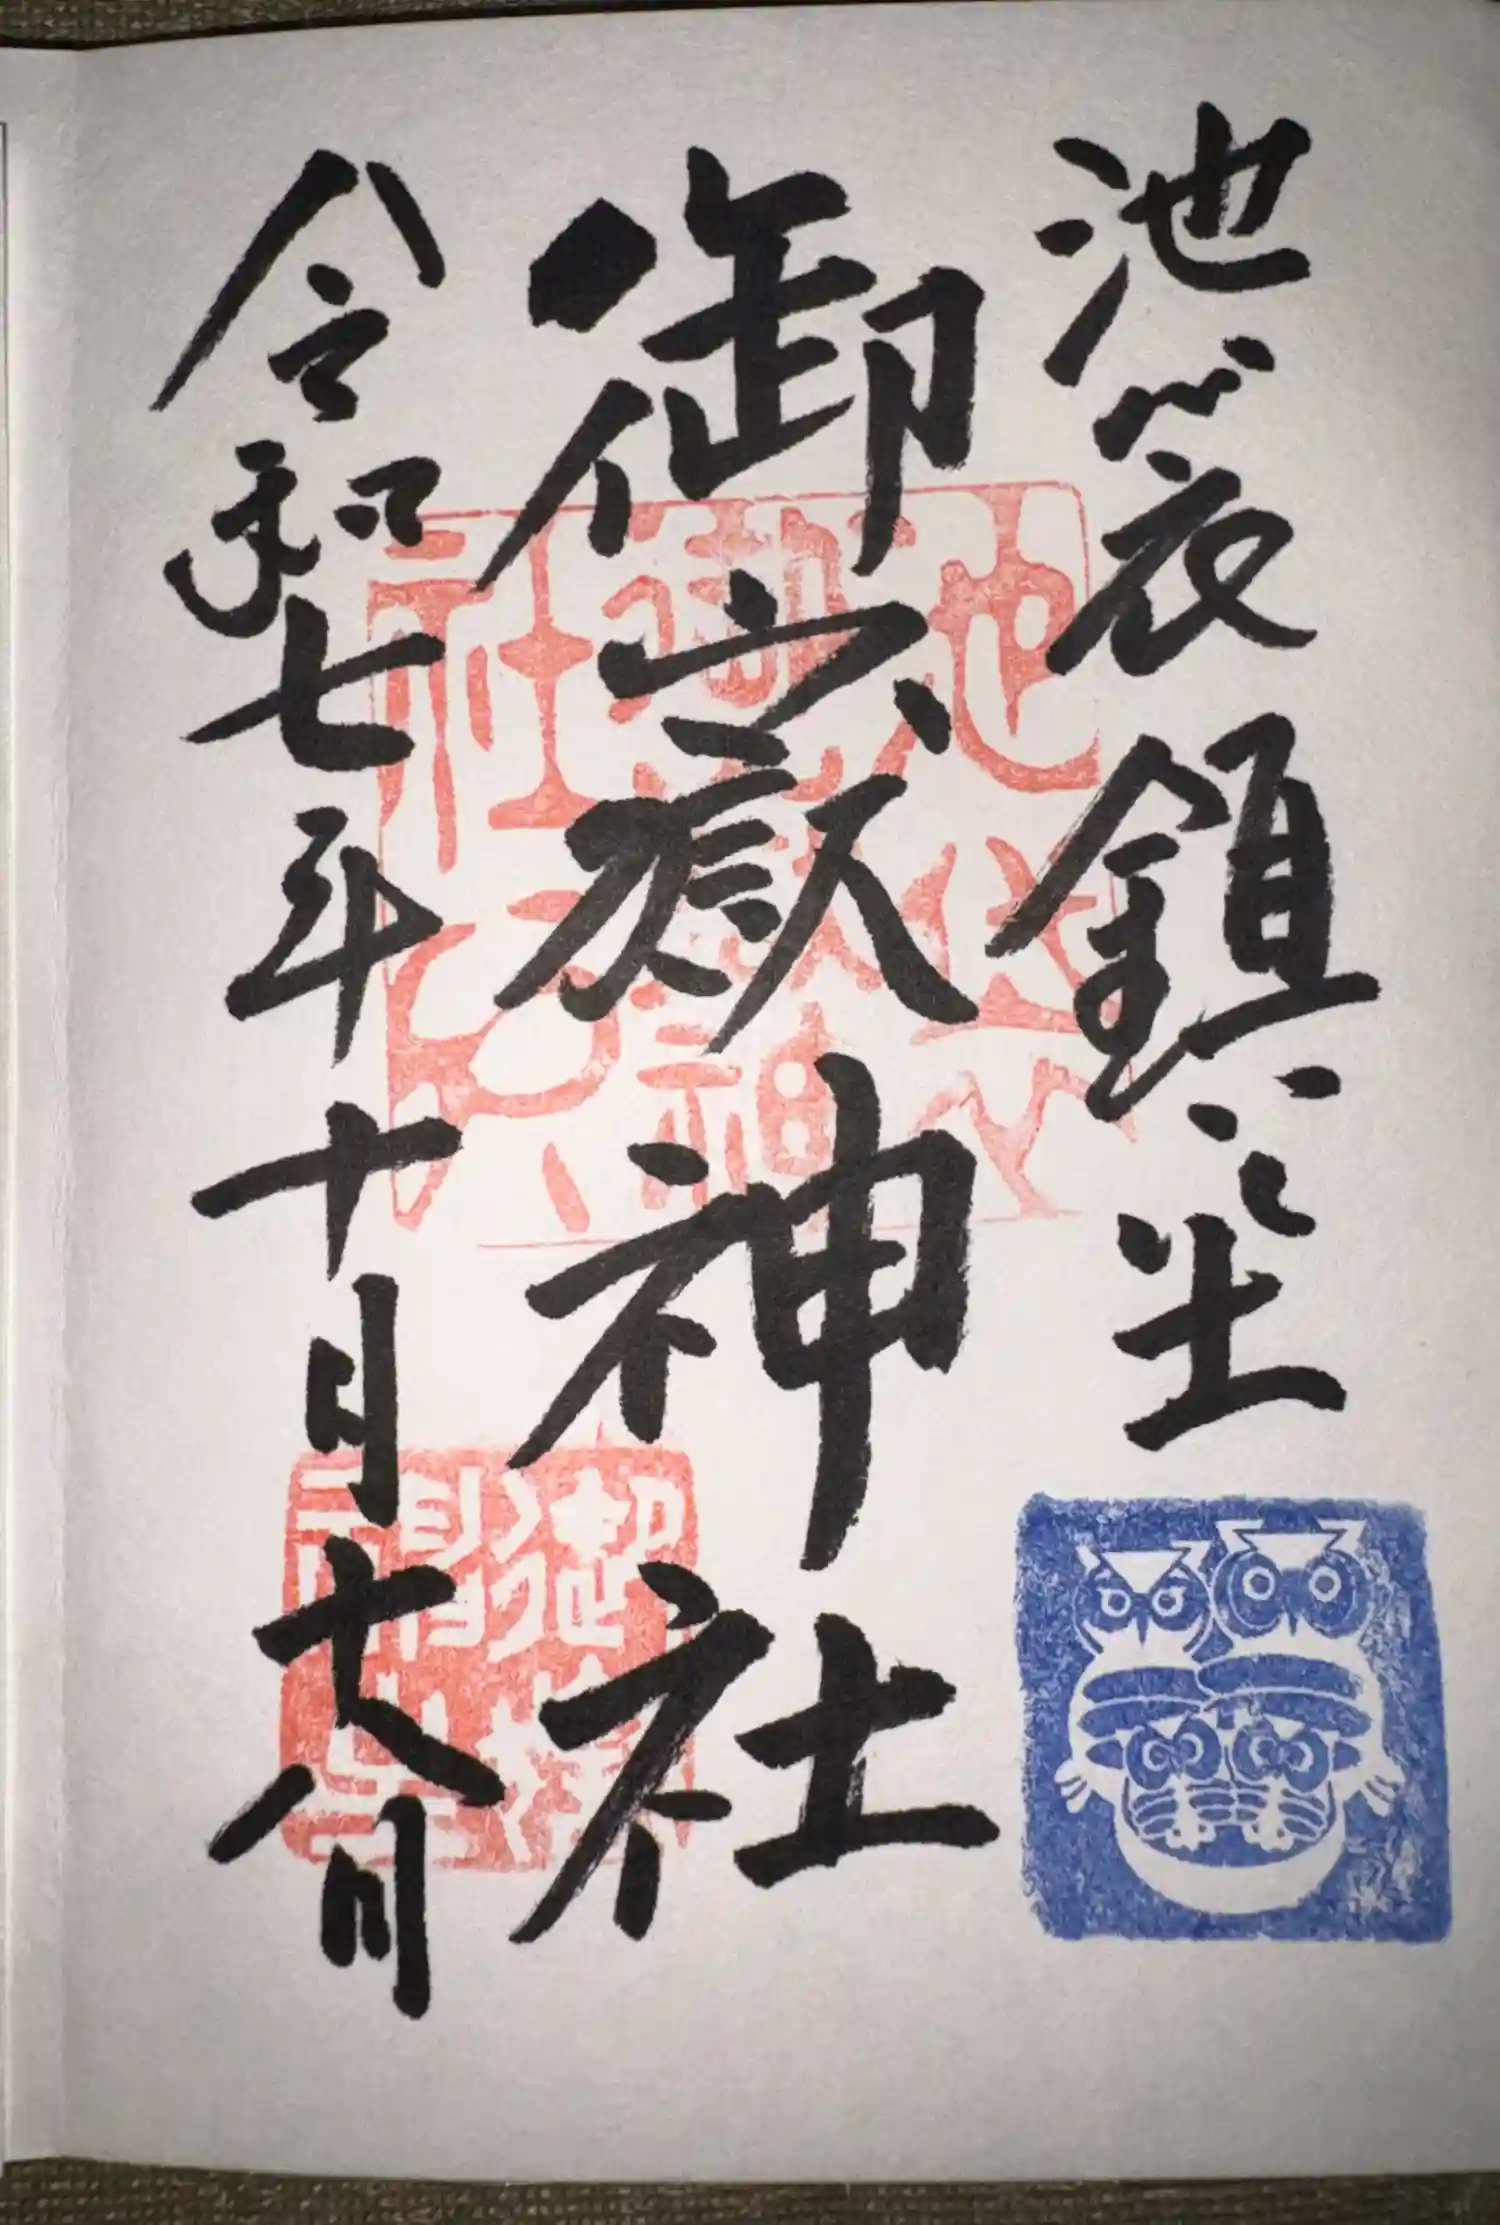 池袋鎮座
御嶽神社
令和七年十月十八日